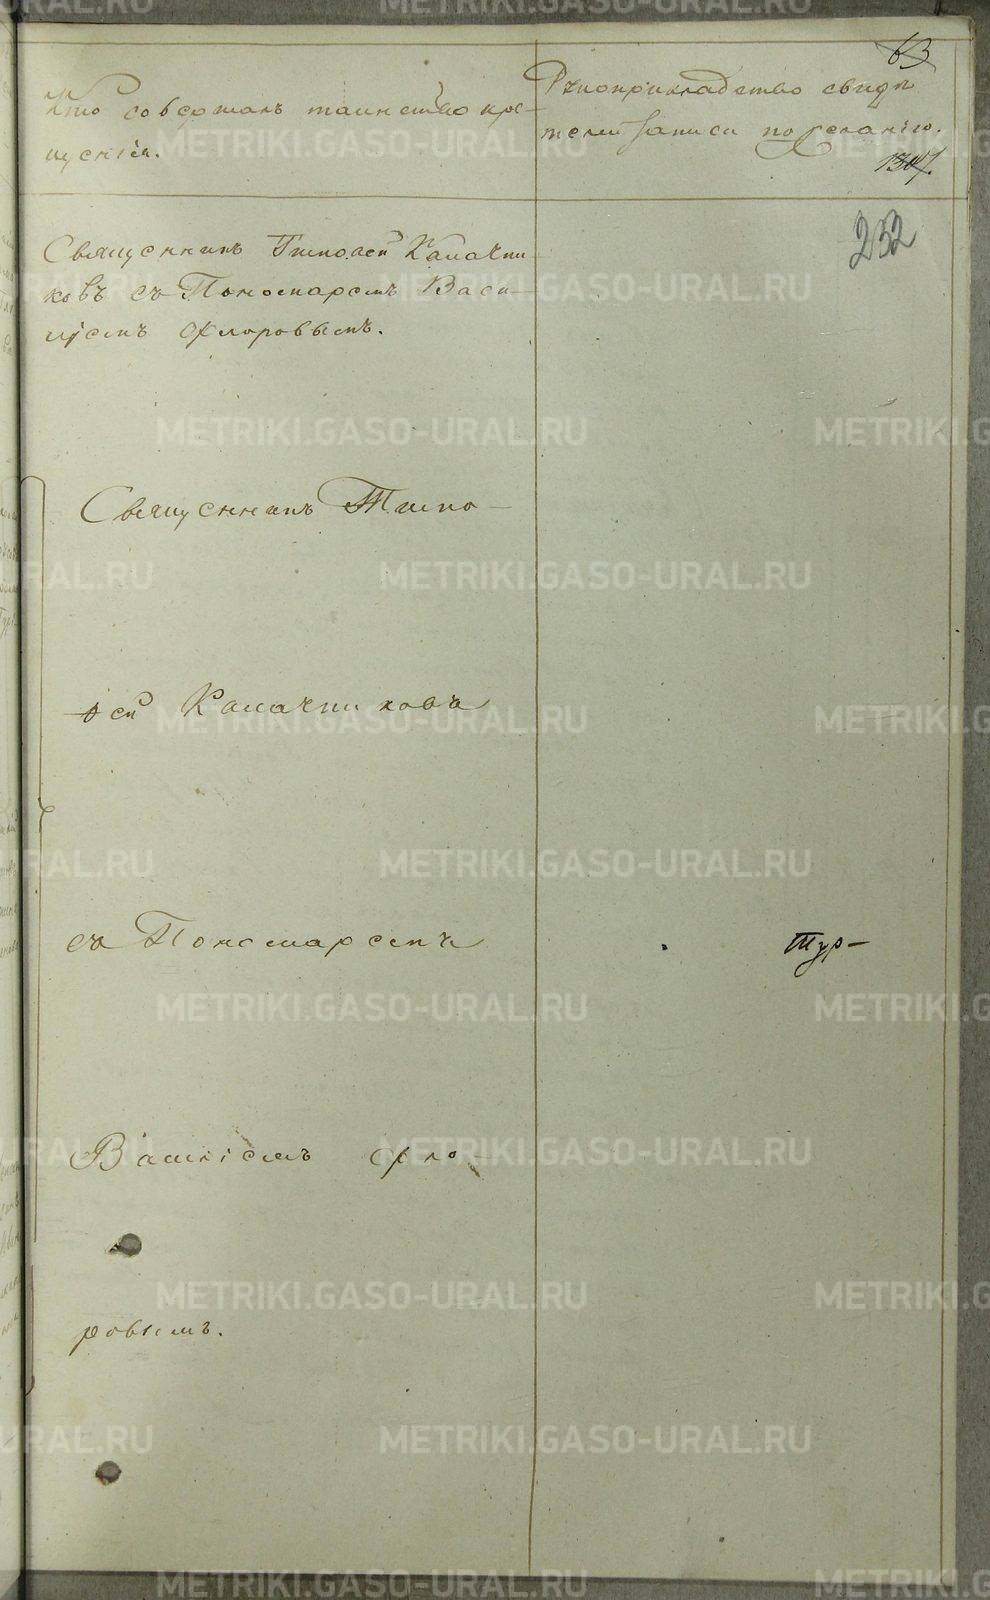 63
Кто совершалъ таинство кре-
щенія.
Рукоприкладство свидѣ-
телей записи по желанію.
1307.
232
Священникъ Тимоѳей Калачни
ковъ съ Пономаремъ Васи-
лiемъ Флоровымъ.
Священникъ Тимо-
ѳей Калачниковъ
съ Пономаремъ
Тур-
Василіемъ Фло-
ровымъ.
METRIKI.GASO-URAL.RU